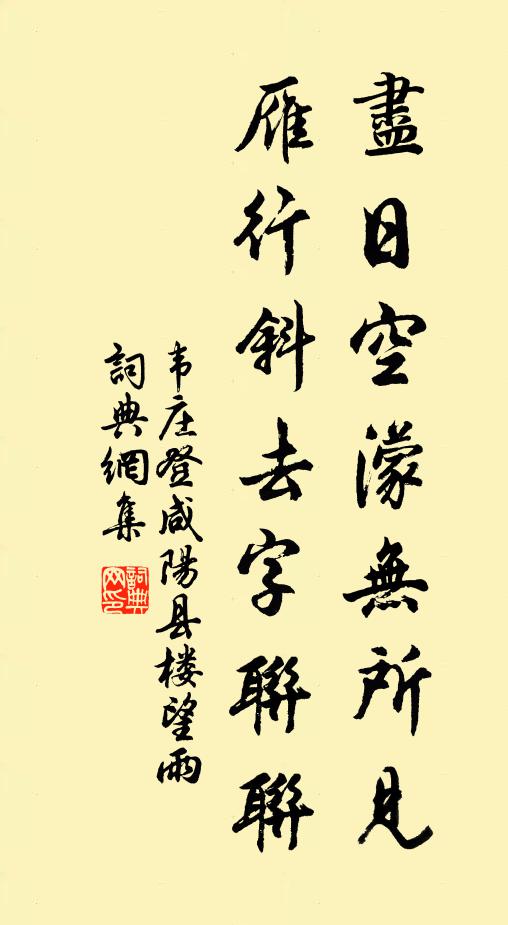 盡日空濛無所見
雁行斜去字聯聯
韦庄登咸陽县楼望雨
詞典網集
詞典网印